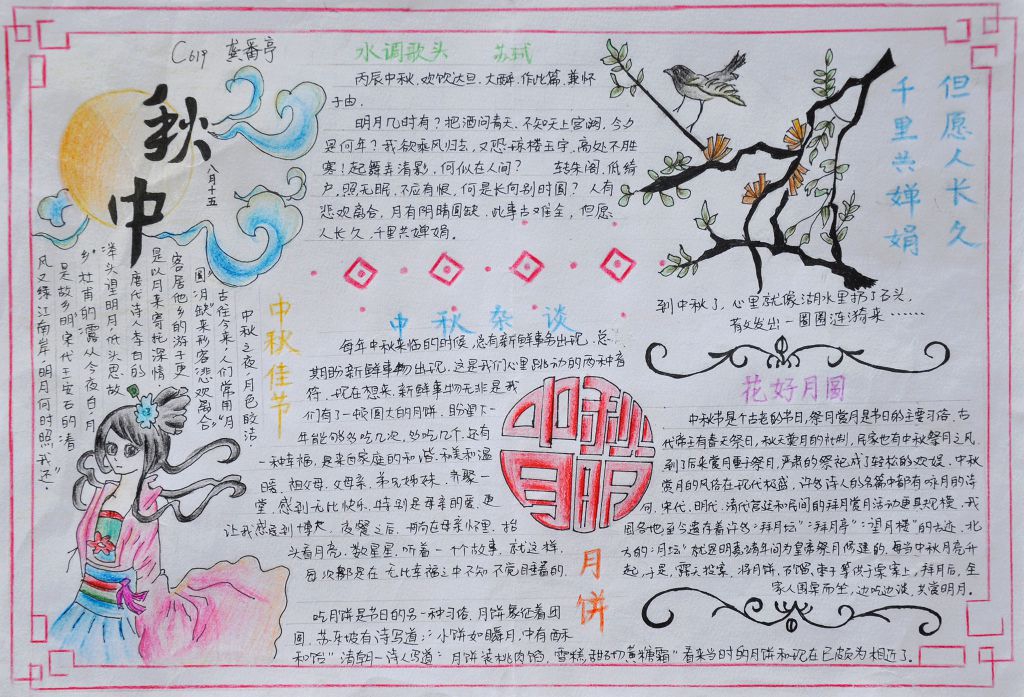 C619 龚番亭
中秋
八月十五
水调歌头 苏轼
丙辰中秋、欢饮达旦、大醉、作此篇、兼怀
子由.
明月几时有?把酒问青天、不知天上宫阙,今夕
是何年?我欲乘风归去,又恐琼楼玉宇,高处不胜
寒!起舞弄清影,何似在人间? 转朱阁,低绮
户,照无眠,不应有恨,何是长向别时圆?人有
悲欢离合,月有阴晴圆缺.此事古难全,但愿
人长久,千里共婵娟。
但愿人长久
千里共婵娟
到中秋了,心里就像湖水里扔了石头,
有发出一圈圈涟漪来……
中秋佳节
中秋之夜,月色皎洁
古往今来,人们常用“月
圆”“月缺”来形容“悲欢离合”
客居他乡的游子更
是以月来寄托深情
唐代诗人李白的
“举头望明月,低头思故
乡”杜甫的“露从今夜白,月
是故乡明”宋代王安石的“春
风又绿江南岸,明月何时照我还”
中秋杂谈
每年中秋来临的时候,总有新鲜事务出现,总
期盼新鲜事物出现,这是我们心里跳动的两种音
符.现在想来,新鲜事物无非是我
们有了一顿圆大的月饼.盼望下一
年能够多吃几次,多吃几个,还有
一种幸福,是来自家庭的和谐.和美和温
暖.祖父母、父母亲、弟兄姊妹、齐聚一
堂,感到无比快乐.特别是母亲的爱,更
让我感受到博大.夜餐之后.册尚在母亲怀里.抬
头看月亮,数星星,听着一个故事.就这样,
每次都是在无比幸福之中不知不觉睡着的.
中秋月饼
花好月圆
中秋节是个古老的节日,祭月赏月是节日的主要习俗.古
代帝王有春天祭日,秋天祭月的社制,民家也有中秋祭月之风,
到了后来赏月重于祭月,严肃的祭祀成了轻松的欢娱.中秋
赏月的风俗在现代极盛,许多诗人的名篇中都有咏月的诗
句,宋代、明代、清代宫廷和民间的拜月赏月活动更具规模.我
国各地至今遗存着许多“拜月坛”“拜月亭”“望月楼”的古迹.北
京的“月坛”就是明嘉靖年间为皇家祭月修建的.每当中秋月亮升
起,于是,露天设案,将月饼,石榴,枣子等供于桌案上,拜月后,全
家人围桌而坐,边吃边谈,共赏明月.
月饼
吃月饼是节日的另一种习俗.月饼象征着团
圆,苏东坡有诗写道:“小饼如嚼月,中有酥
和饴”清朝一诗人写道:“月饼装桃肉馅,雪糕甜砌黄糖霜”看来当时的月饼和现在已颇为相近了.